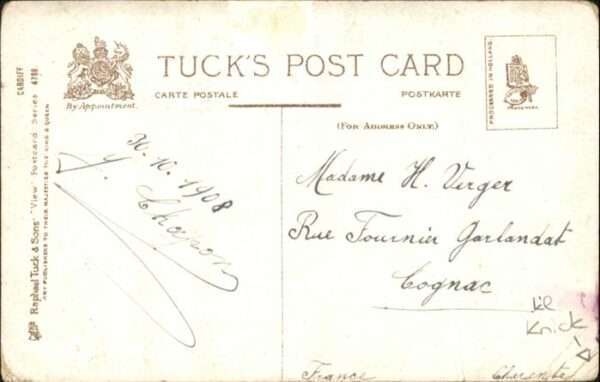 TUCK'S POST CARD
CARTE POSTALE
POSTKARTE
By Appointment.
(For Address Only.)
PROCESSED IN HOLLAND
CARDIFF
Raphael Tuck & Sons' "View" Postcard Series 4788
ART PUBLISHERS TO THEIR MAJESTIES THE KING & QUEEN
30.10.1908
Y. Chapon
Madame H. Verger
Rue Fournier Garlandat
Cognac
France
Charente
Knick